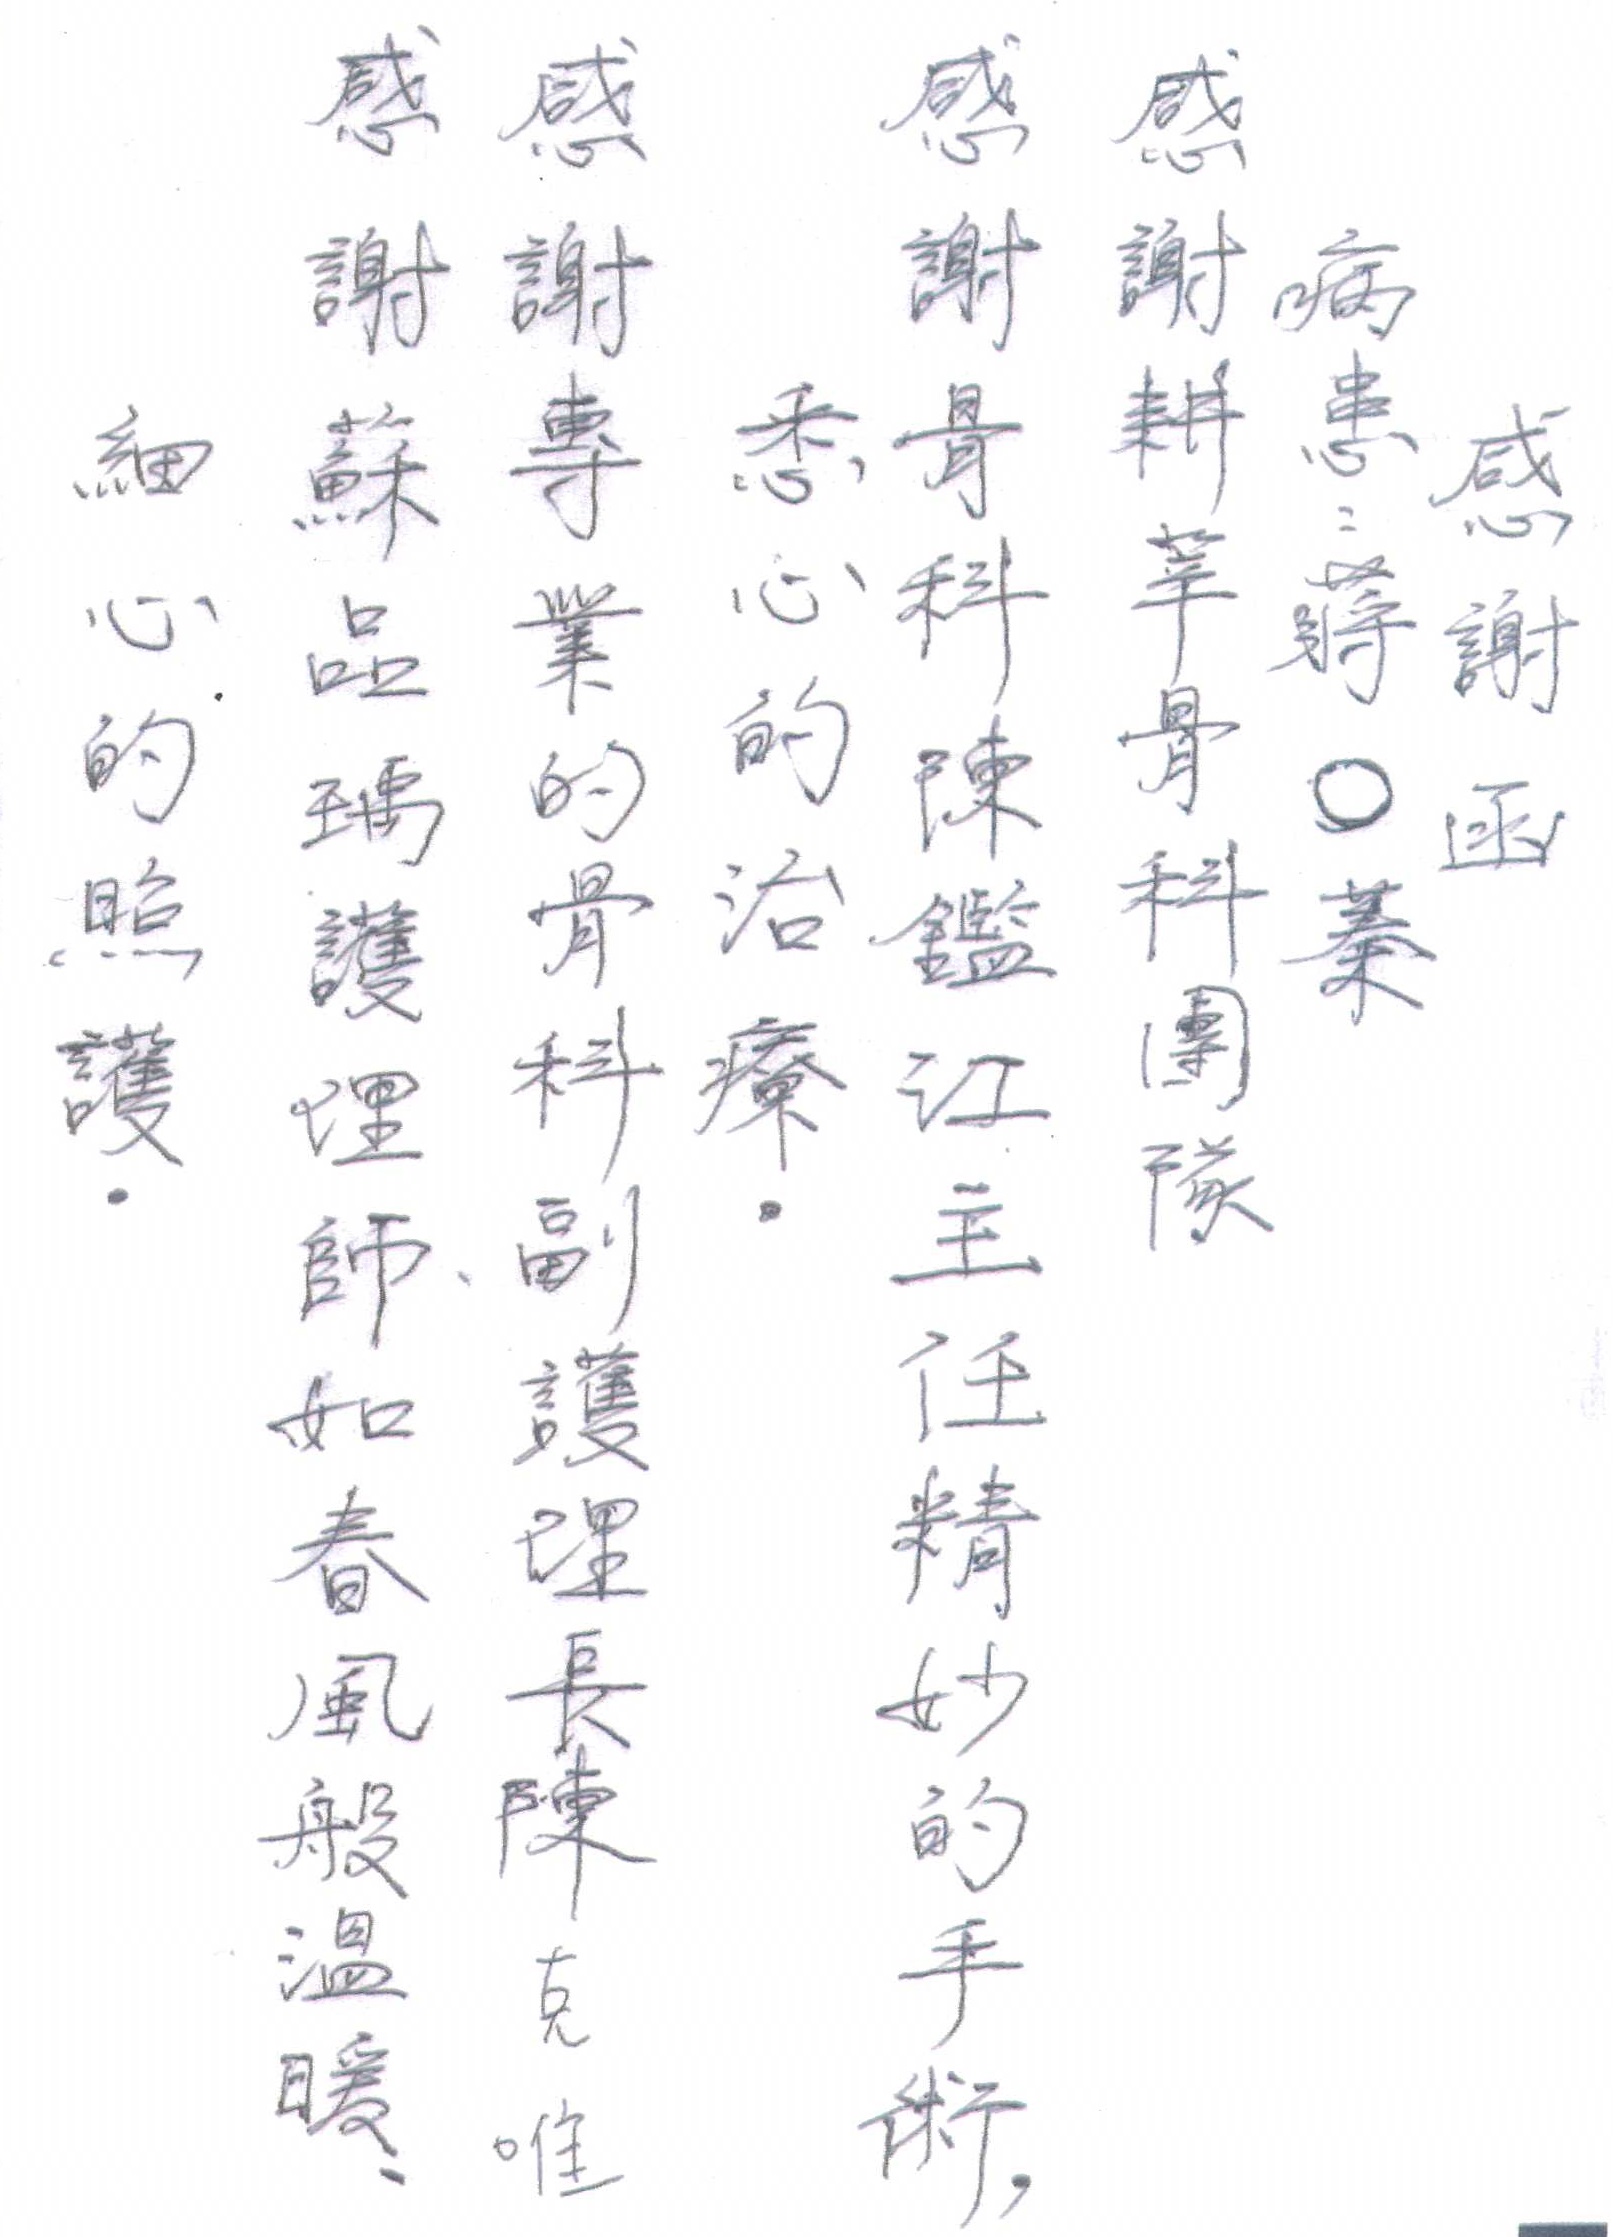 感謝函
病患:蔣○蓁
感謝耕莘骨科團隊
感謝骨科陳鑑江主任精妙的手術,
悉心的治療.
感謝專業的骨科副護理長陳克唯
感謝蘇品瑀護理師、如春風般溫暖、
細心的照護.